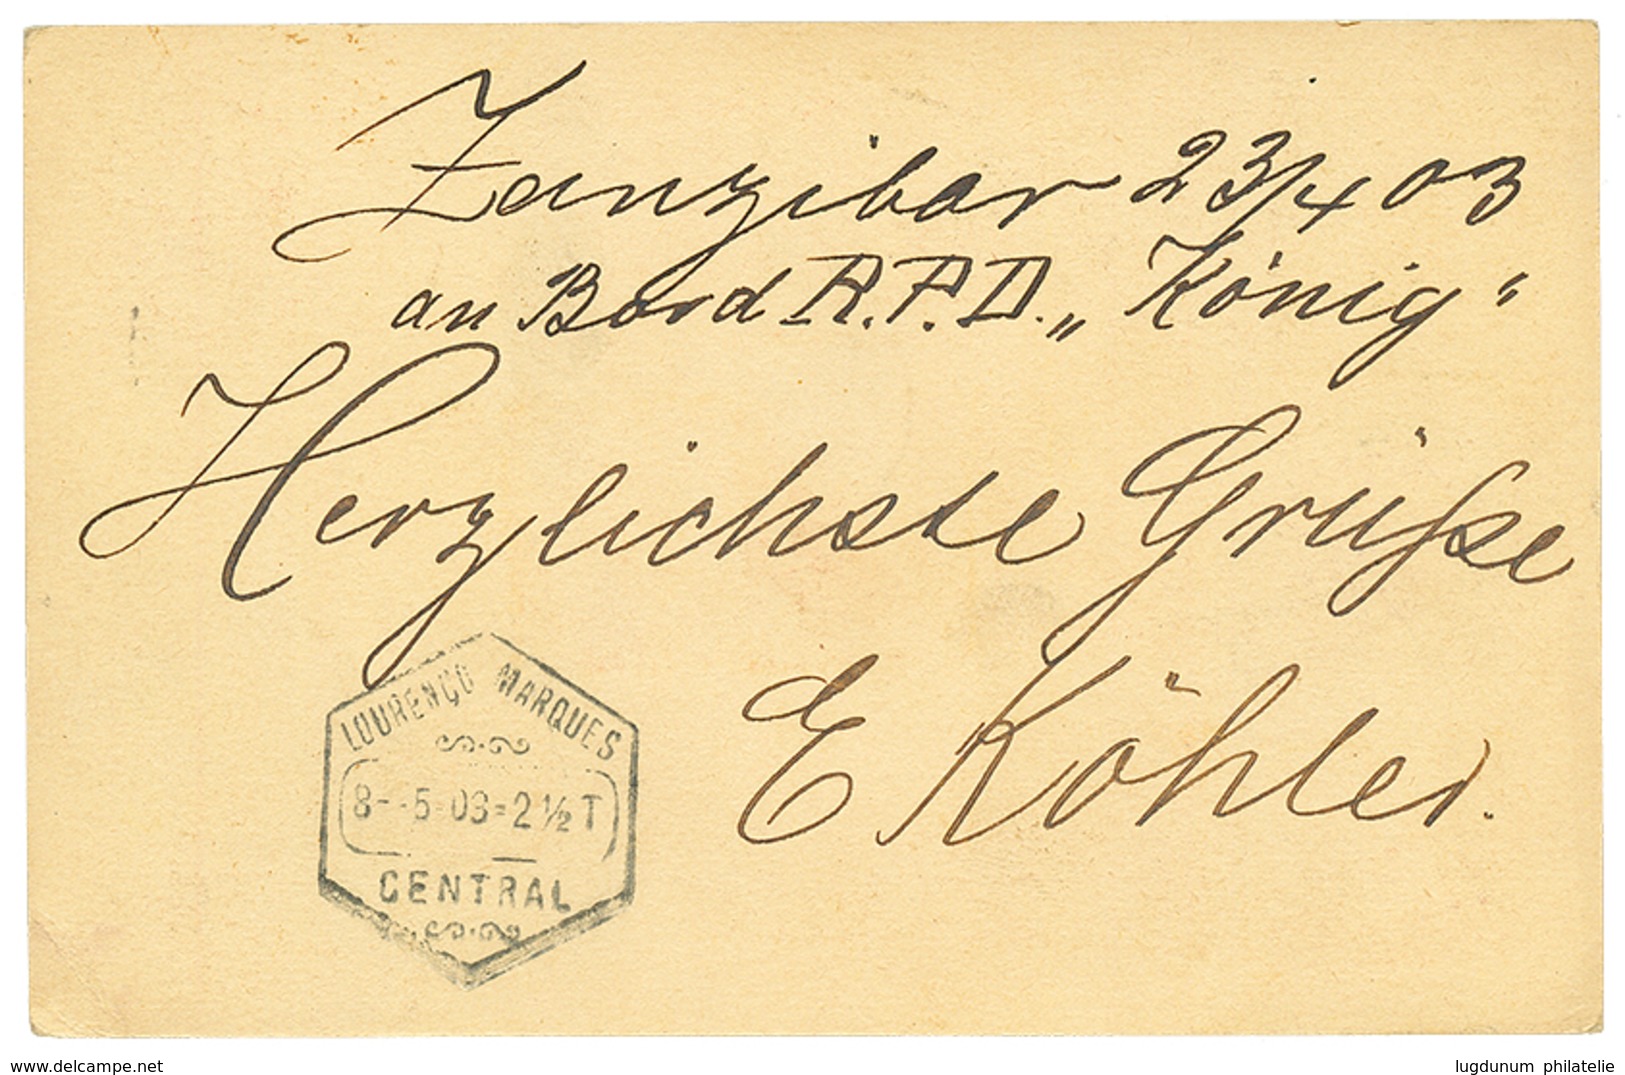 Zanzibar 23/4 03
an Bord R.P.D. „König“
Herzlichste Grüße
E Köhler.
LOURENÇO MARQUES
8--5-03=2½T
CENTRAL
delcampe.net
lugdunum philatelie